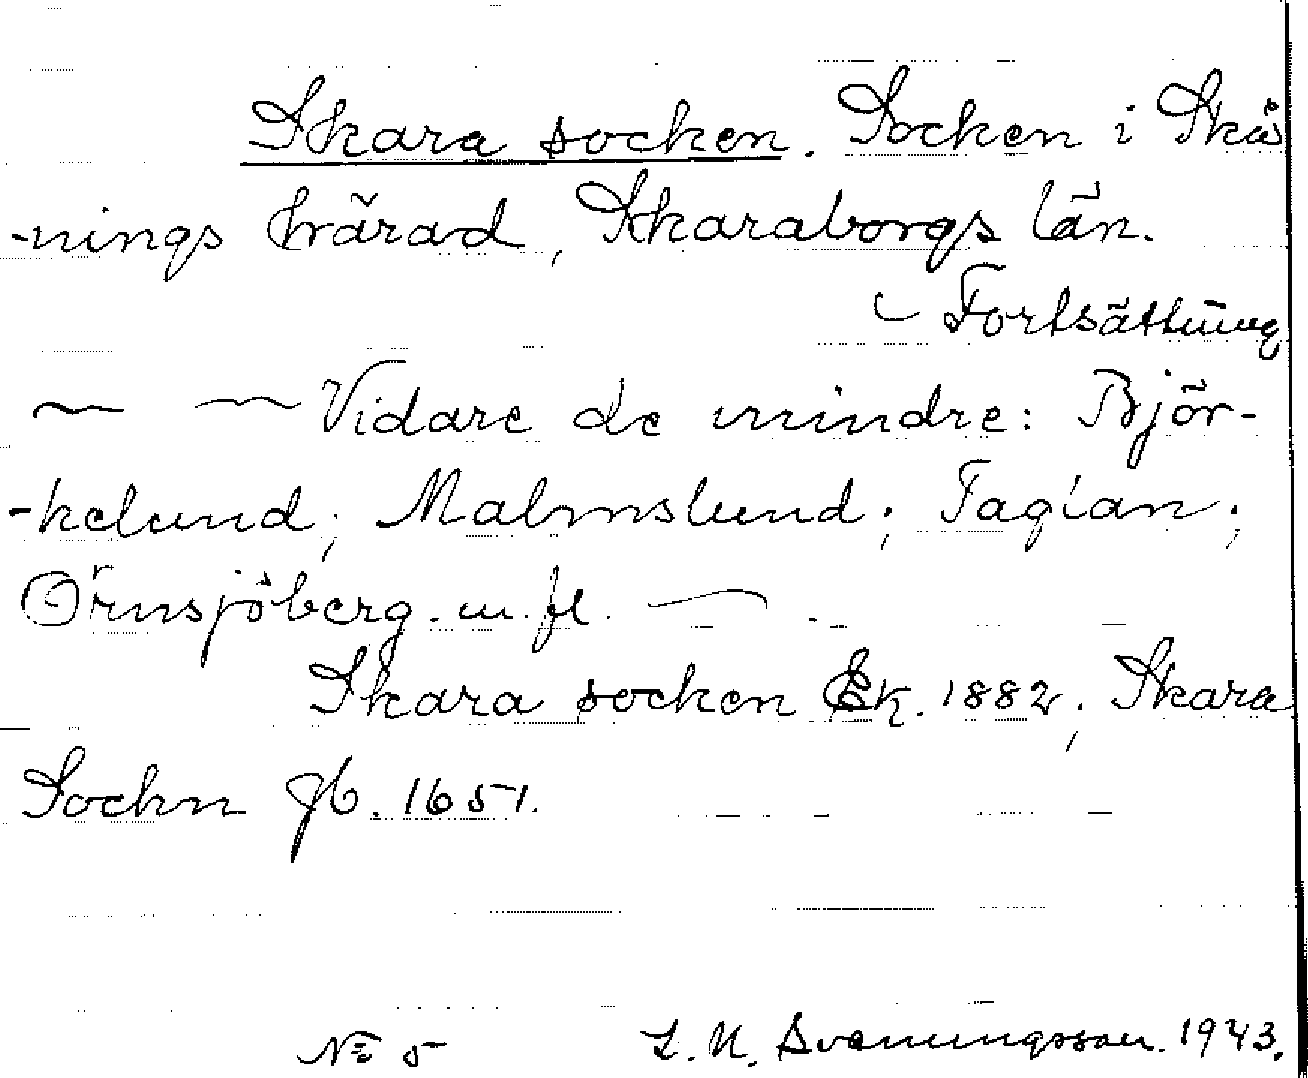 Skara socken. Socken i Skå
-nings härad, Skaraborgs län.
Fortsättning
— — Vidare de mindre: Björ-
-kelund; Malmslund; Faglan;
Örnsjöberg. m. fl. —
Skara socken Ek. 1882; Skara
Sockn Jb. 1651.
No 5 L. N. Svenungsson. 1943.